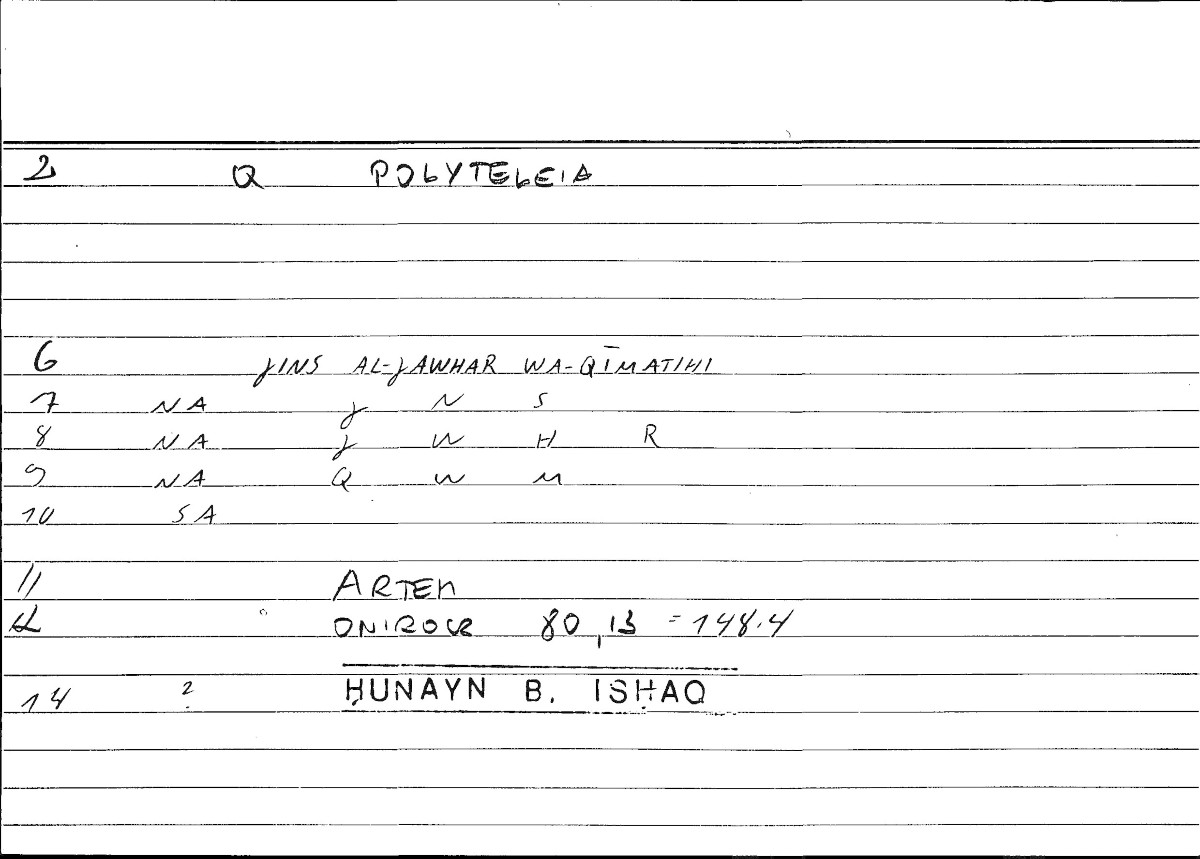 2 Q POLYTELEIA
6 JINS AL-JAWHAR WA-QĪMATIHI
7 NA J N S
8 NA J W H R
9 NA Q W M
10 SA
11 ARTEM
12 ONIROCR 80,13 = 148.4
14 ? ḤUNAYN B. ISḤAQ